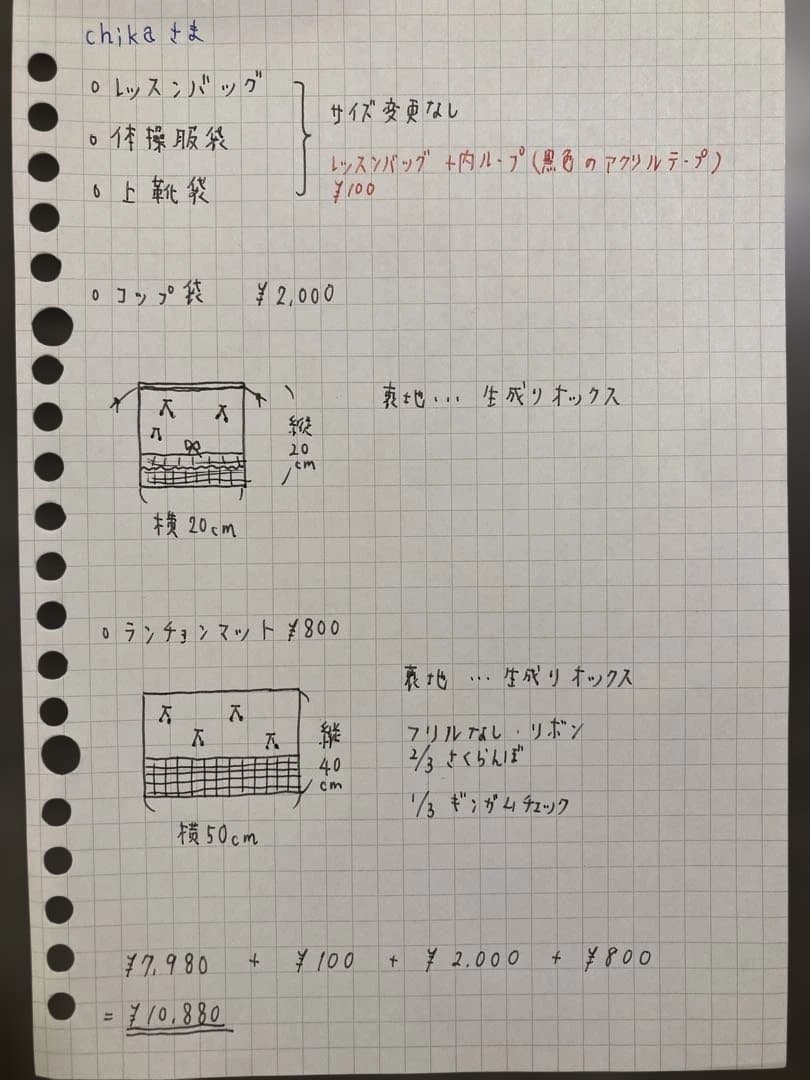 chikaさま
○ レッスンバッグ
○ 体操服袋
○ 上靴袋
サイズ変更なし
レッスンバッグ +内ループ(黒色のアクリルテープ)
¥100
○ コップ袋 ¥2,000
縦
20
cm
横 20cm
裏地... 生成りオックス
○ ランチョンマット ¥800
縦
40
cm
横 50cm
裏地 ... 生成りオックス
フリルなし・リボン
2/3 さくらんぼ
1/3 ギンガムチェック
¥7,980 + ¥100 + ¥2.000 + ¥800
= ¥10.880